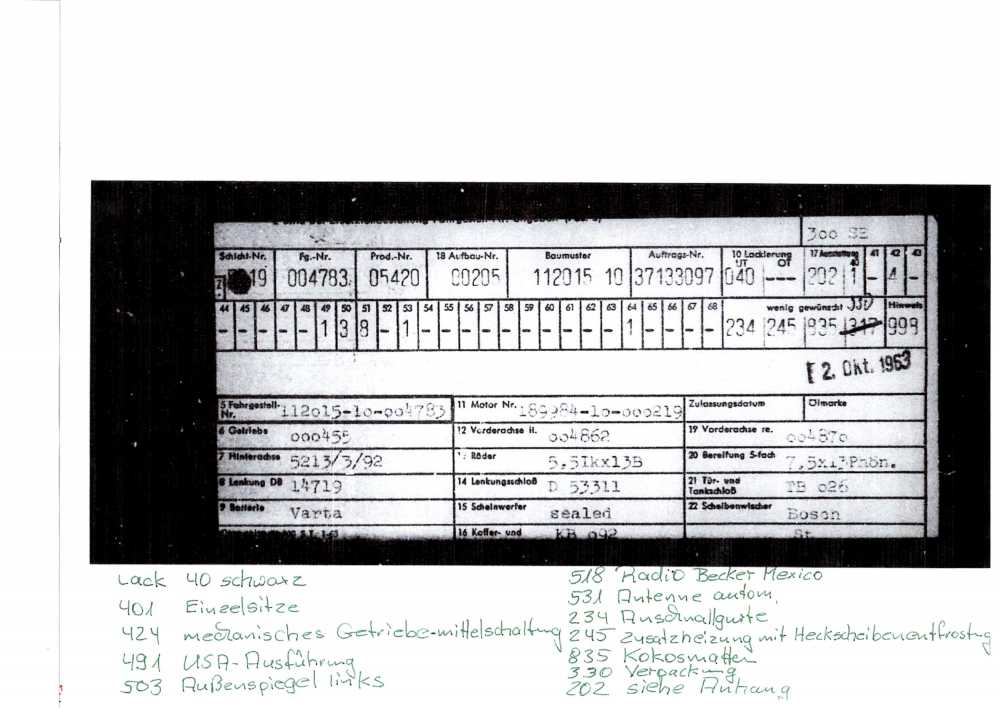 300 SE
Schicht-Nr. Fg.-Nr. Prod.-Nr. 18 Aufbau-Nr. Baumuster Auftrags-Nr. 10 Lackierung UT OT 17 Ausstattung 40 41 42 43
19 004783 05420 00205 112015 10 37133097 040 --- 202 1 - 4 -
44 45 46 47 48 49 50 51 52 53 54 55 56 57 58 59 60 61 62 63 64 65 66 67 68 wenig gewünscht 330 Hinweis
- - - - - 1 3 8 - 1 - - - - - - - - - - 1 - - - - 234 245 835 317 999
2. Okt. 1963
5 Fahrgestell-Nr. 112o15-1o-oo4783 11 Motor Nr. 189984-1o-ooo219 Zulassungsdatum Ölmarke
6 Getriebe ooo455 12 Vorderachse li. oo4862 19 Vorderachse re. oo487o
7 Hinterachse 5213/3/92 Räder 5,5Jkx13B 20 Bereifung 5-fach 7,5x13Phön.
8 Lenkung DB 14719 14 Lenkungsschloß D 53311 21 Tür- und Tankschloß TB o26
9 Batterie Varta 15 Scheinwerfer sealed 22 Scheibenwischer Bosch
16 Koffer- und KB o92 St.
Lack 40 schwarz
401 Einzelsitze
424 mechanisches Getriebe-mittelschaltung
491 USA-Ausführung
503 Außenspiegel links
518 Radio Becker Mexico
531 Antenne autom.
234 Anschnallgurte
245 Zusatzheizung mit Heckscheibenentfrostng
835 Kokosmatten
330 Verpackung
202 siehe Anhang